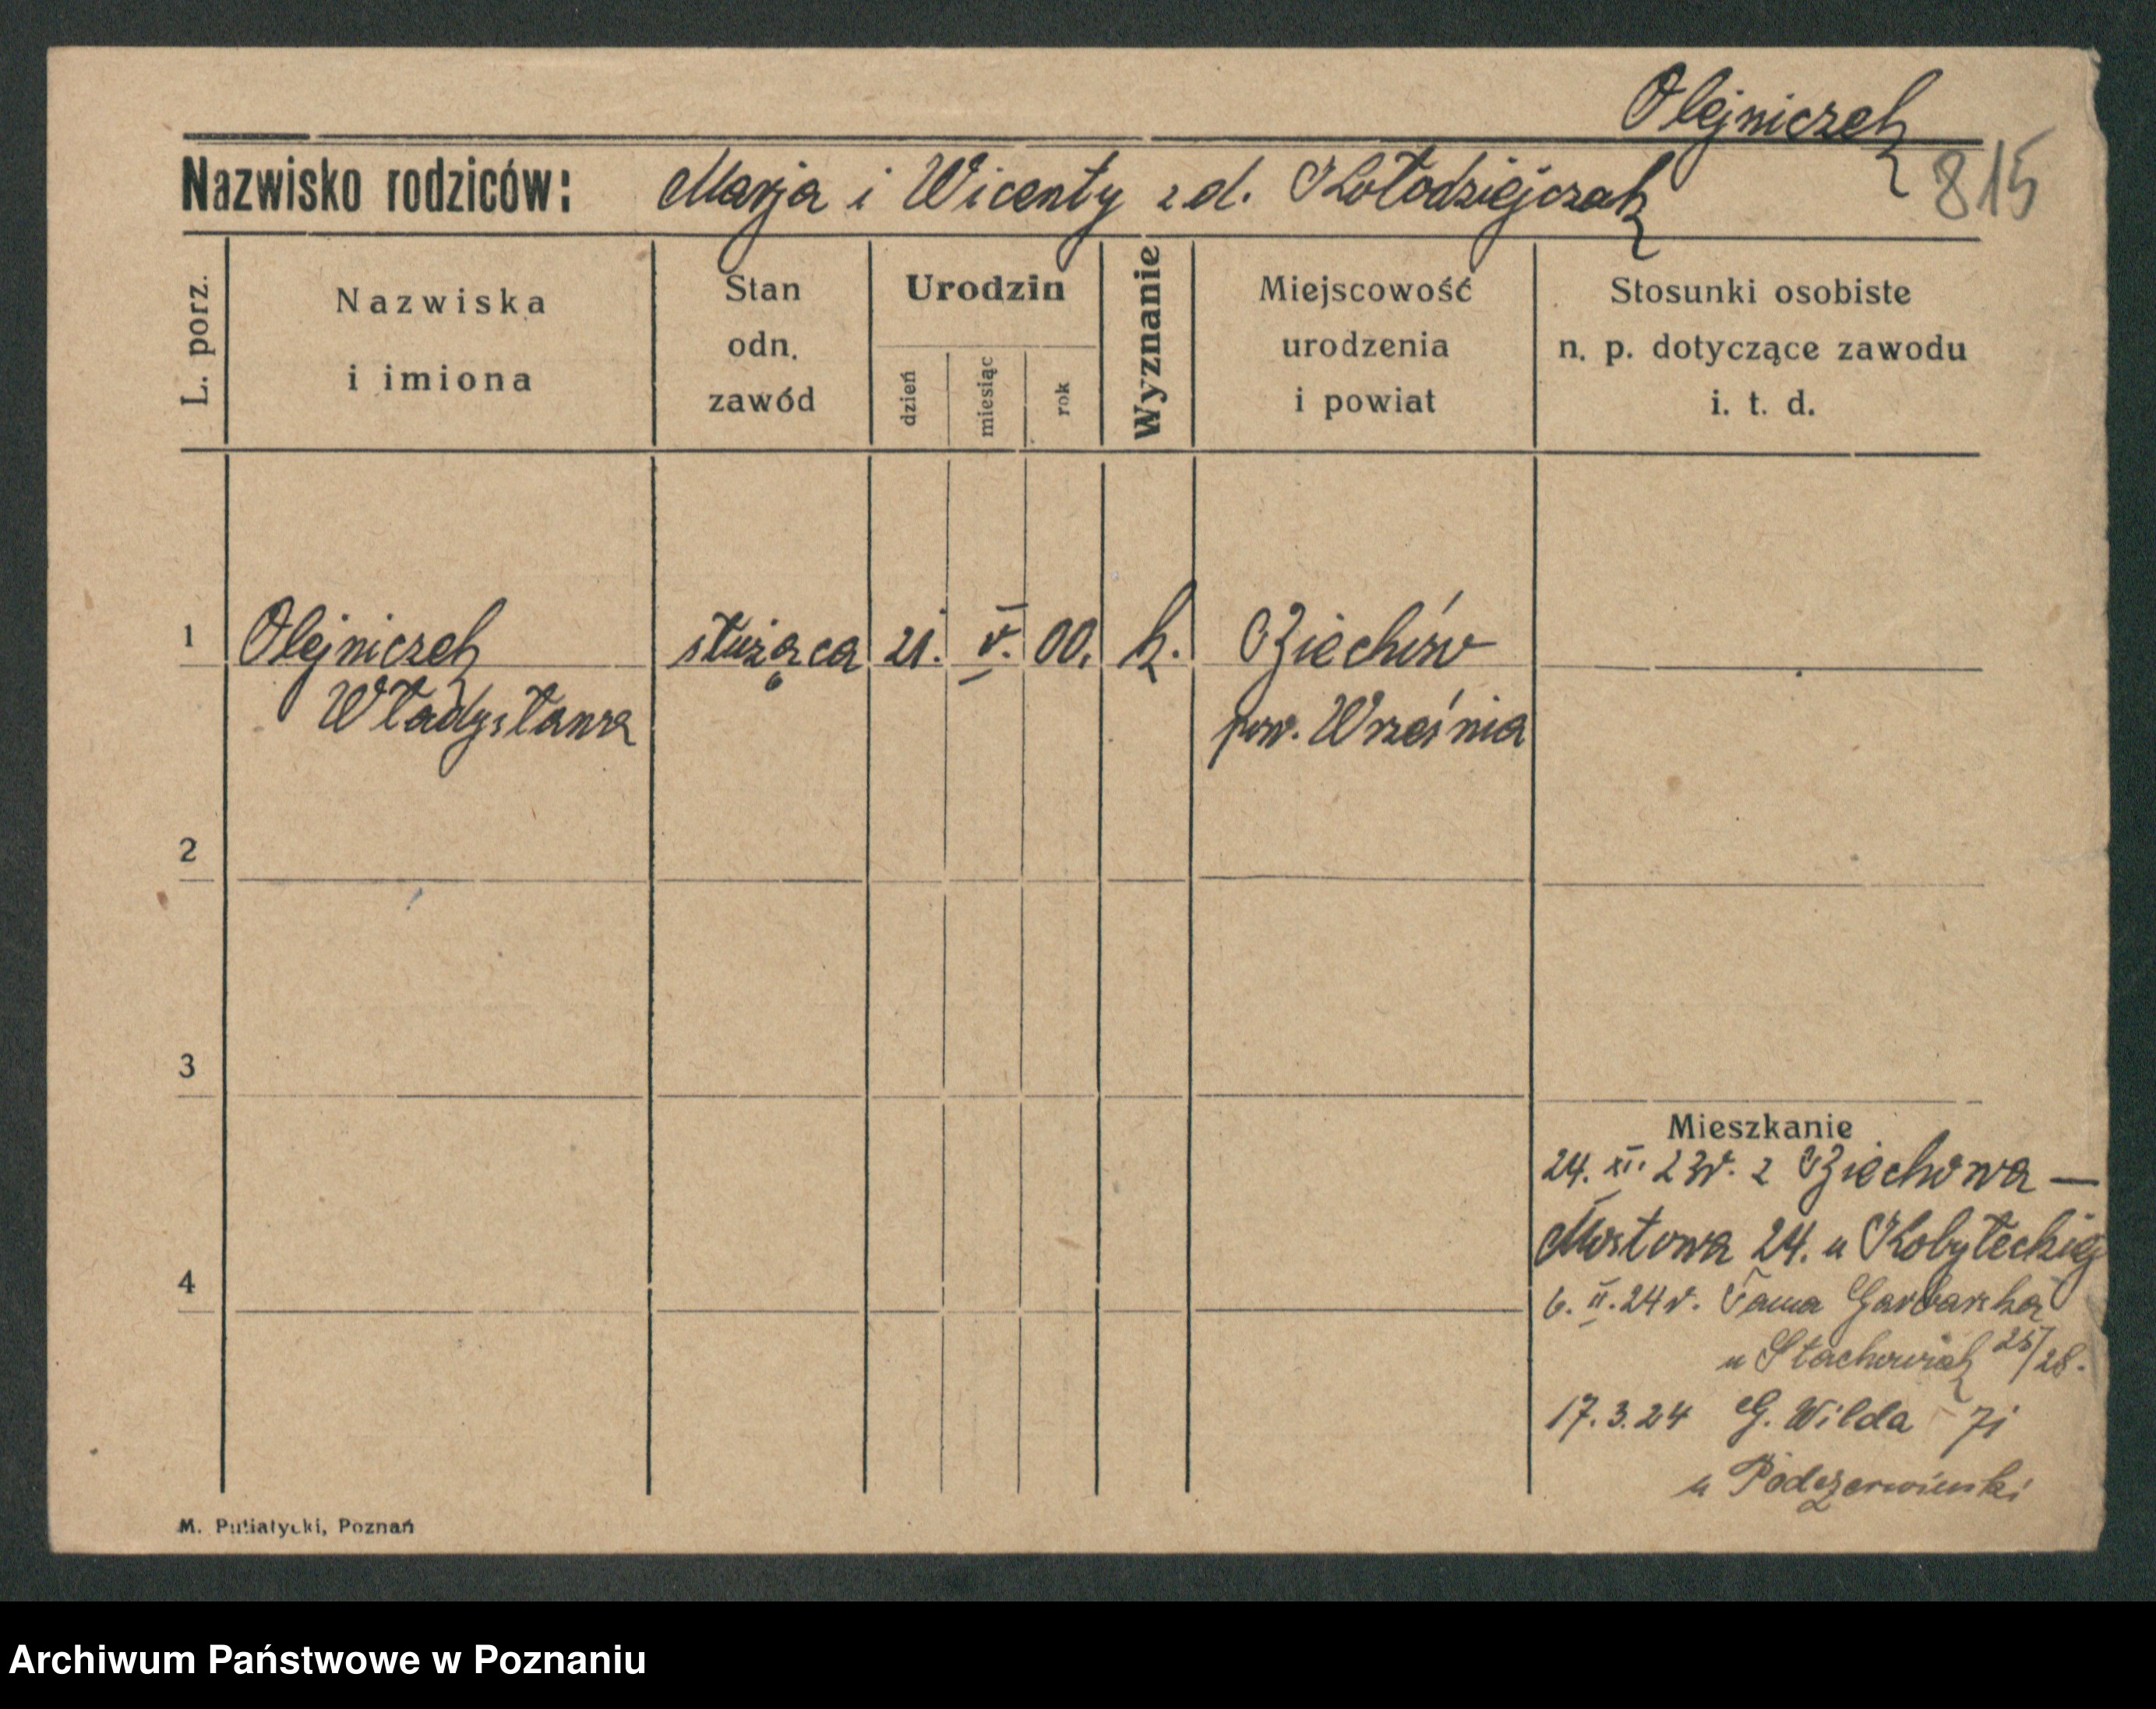 Olejniczak
Nazwisko rodziców: Marja i Wicenty z d. Kołodziejczak
815
L. porz.
Nazwiska
i imiona
Stan
odn.
zawód
Urodzin
dzień
miesiąc
rok
Wyznanie
Miejscowość
urodzenia
i powiat
Stosunki osobiste
n. p. dotyczące zawodu
i. t. d.
1 Olejniczak służąca 21. V. 00. k.
Władysława pow. Września
2
3
Mieszkanie
24. XII. 23r. z
Mostowa 24. u
4
6. II. 24r. Tama Garbarska
u Stachowiak 25/28.
17.3.24 G. Wilda 71
u Podczerwiński
M. Putiatycki, Poznań
Archiwum Państwowe w Poznaniu